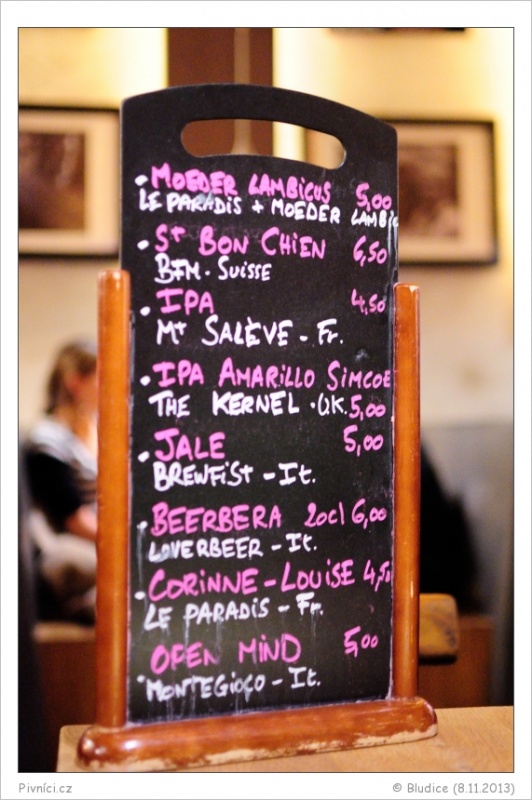 • MOEDER LAMBICUS 5,00
LE PARADIS + MOEDER LAMBIC
• St BON CHIEN 6,50
BFM. SUISSE
• IPA 4,50
Mt SALÈVE - Fr.
• IPA AMARILLO SIMCOE
THE KERNEL • UK. 5,00
• JALE 5,00
BREWFIST - It.
• BEERBERA 20cl 6,00
LOVERBEER - It.
• CORINNE - LOUISE 4,50
LE PARADIS - Fr.
• OPEN MIND 5,00
MONTEGIOCO - It.
Pivníci.cz © Bludice (8.11.2013)